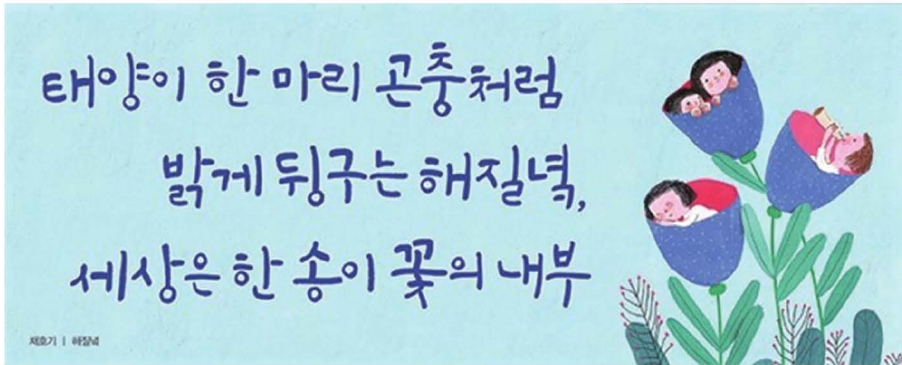 태양이 한 마리 곤충처럼
밝게 뒹구는 해질녘,
세상은 한 송이 꽃의 내부
채호기 | 해질녘